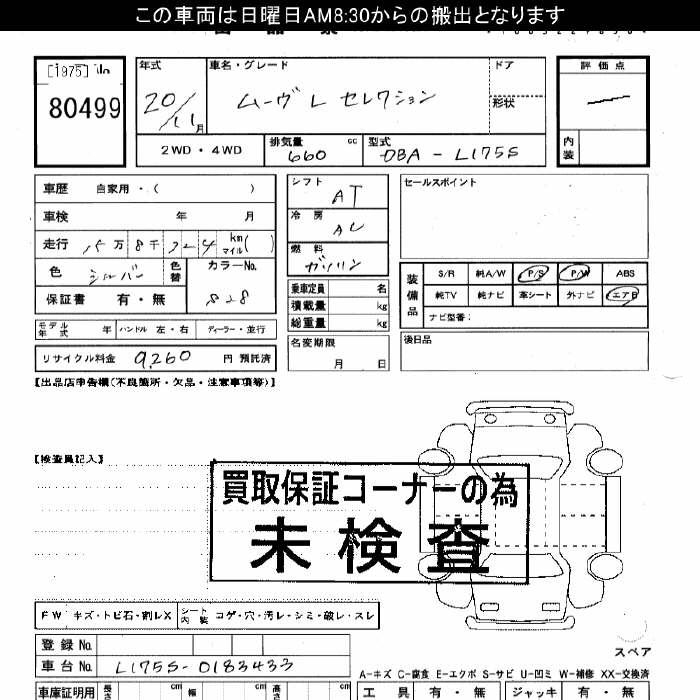 この車両は日曜日AM8:30からの搬出となります
[1975] No
80499
年式
20/11月
車名・グレード
ムーヴ L セレクション
ドア
形状
評価点
内装
2WD・4WD
排気量 cc
660
型式
DBA-L175S
車歴 自家用・( )
車検 年 月
走行 15万8千324 km マイル( )
色 シルバー 色替
カラーNo.
S28
保証書 有・無
モデル年式 年 ハンドル 左・右 ディーラー・並行
リサイクル料金 9,260 円 預託済
シフト
AT
冷房
AC
燃料
ガソリン
乗車定員 名
積載量 kg
総重量 kg
名変期限
月 日
セールスポイント
装備品
S/R 純A/W P/S P/W ABS
純TV 純ナビ 革シート 外ナビ エアB
ナビ型番:
後日品
【出品店申告欄(不良箇所・欠品・注意事項等)】
【検査員記入】
買取保証コーナーの為
未検査
FW キズ・トビ石・割レX シート内装 コゲ・穴・汚レ・シミ・破レ・スレ
登録No.
車台No. L175S-0183433
スペア
A-キズ C-腐食 E-エクボ S-サビ U-凹ミ W-補修 XX-交換済
車庫証明用 長さ cm 幅 cm 高さ cm
工具 有・無 ジャッキ 有・無